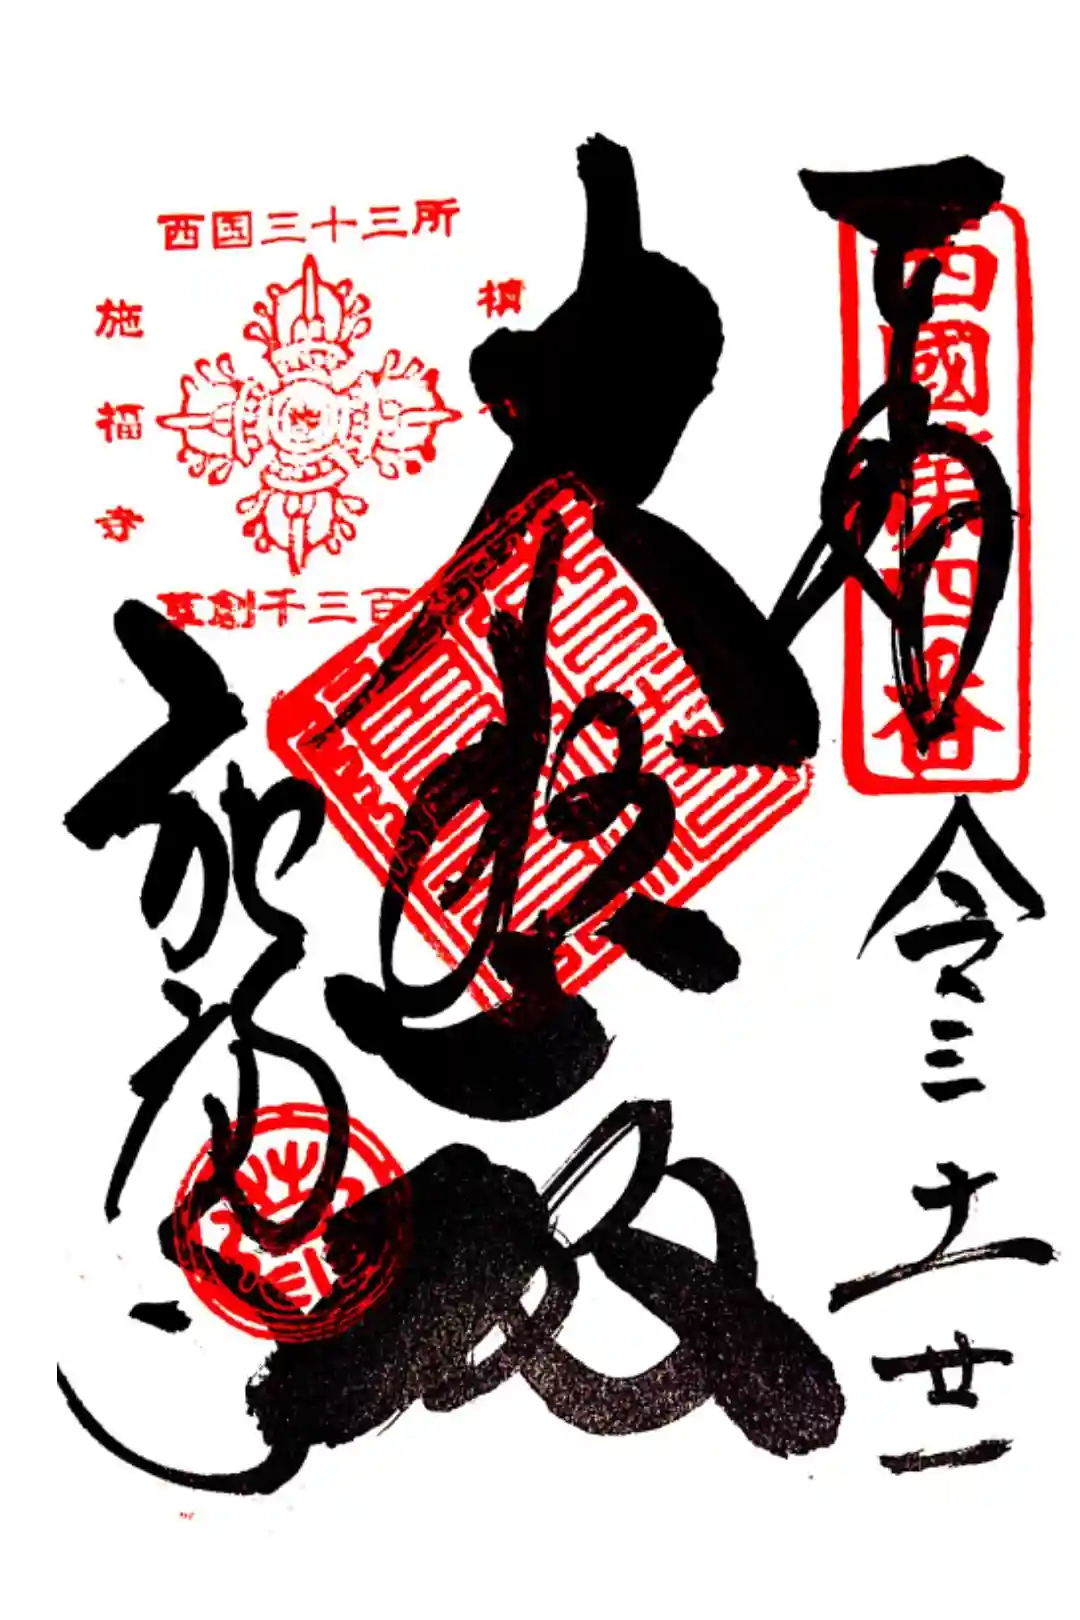 奉拝
西國第四番
令三
十一
廿一
大悲殿
西国三十三所
槇
施福寺
草創千三百
施福寺